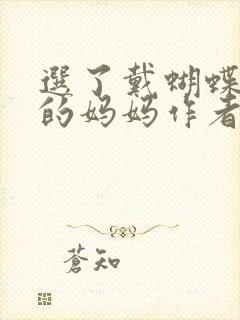 選了戴蝴蝶
的妈妈作者
蒼知